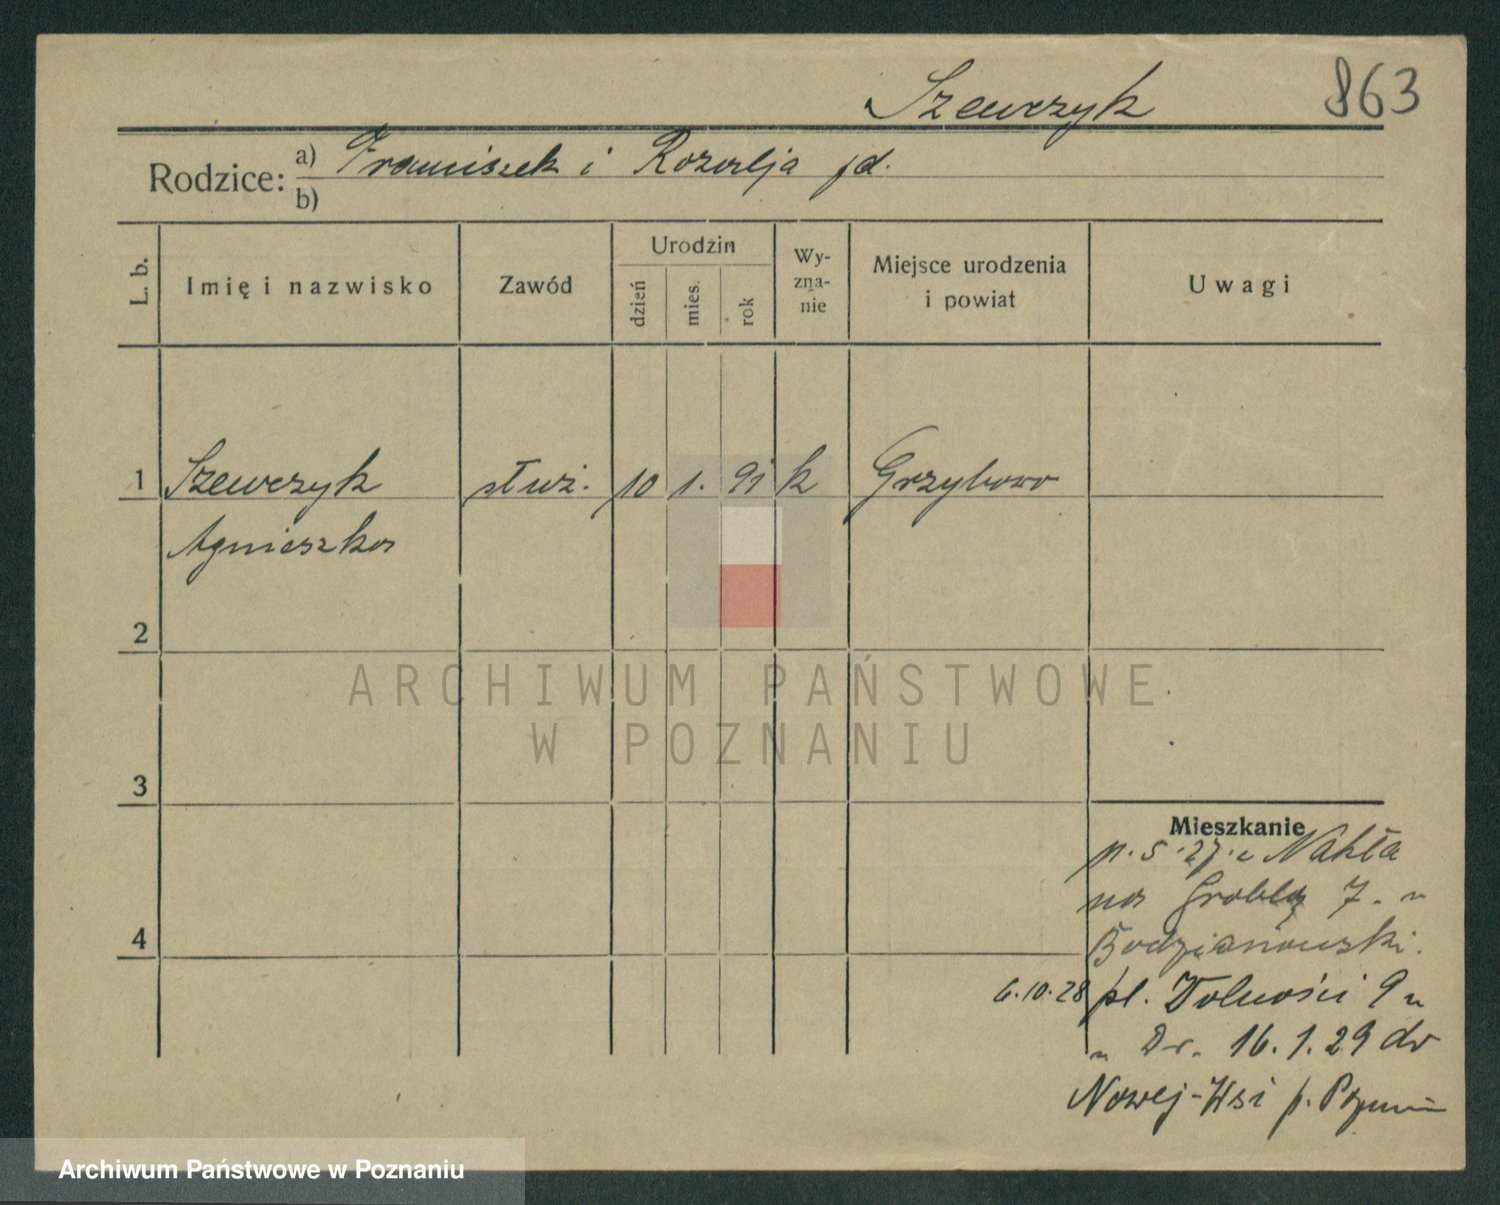 863
Szewczyk
Rodzice:
a) Franciszek i Rozalja jd.
b)
L. b.
Imię i nazwisko
Zawód
Urodzin
dzień
mies.
rok
Wy-
zna-
nie
Miejsce urodzenia
i powiat
Uwagi
1 Szewczyk służ. 10 1. 91 k Grzybowo
Agnieszka
2
3
4
ARCHIWUM PAŃSTWOWE
W POZNANIU
Mieszkanie
5. 27. z Nakła
na Groblą 7. u
Bodzianowski.
6.10.28 pl. Wolności 9 u
Dr. 16.1.29 do
Nowej-Wsi p.
Archiwum Państwowe w Poznaniu